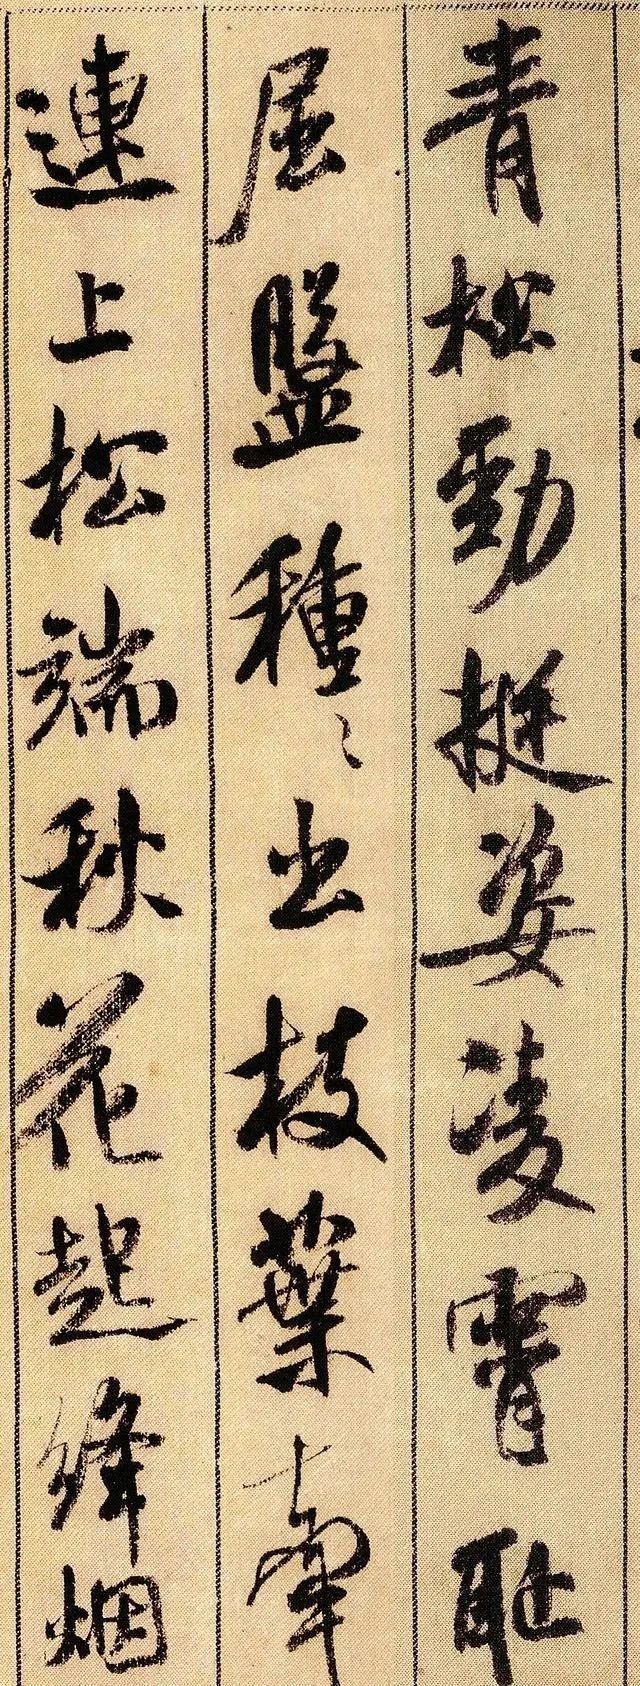 青松勁挺姿凌霄恥
屈盤種〻出枝葉牽
連上松端秋花起絳烟